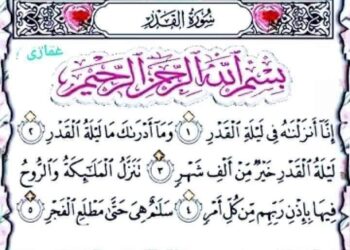 سُورَةُ القَدْرِ
غمازى
بِسْمِ ٱللَّهِ ٱلرَّحْمَٰنِ ٱلرَّحِيمِ
إِنَّا أَنزَلْنَٰهُ فِى لَيْلَةِ ٱلْقَدْرِ ١ وَمَا أَدْرَىٰكَ مَا لَيْلَةُ ٱلْقَدْرِ ٢
لَيْلَةُ ٱلْقَدْرِ خَيْرٌ مِّنْ أَلْفِ شَهْرٍ ٣ تَنَزَّلُ ٱلْمَلَٰٓئِكَةُ وَٱلرُّوحُ
فِيهَا بِإِذْنِ رَبِّهِم مِّن كُلِّ أَمْرٍ ٤ سَلَٰمٌ هِىَ حَتَّىٰ مَطْلَعِ ٱلْفَجْرِ ٥